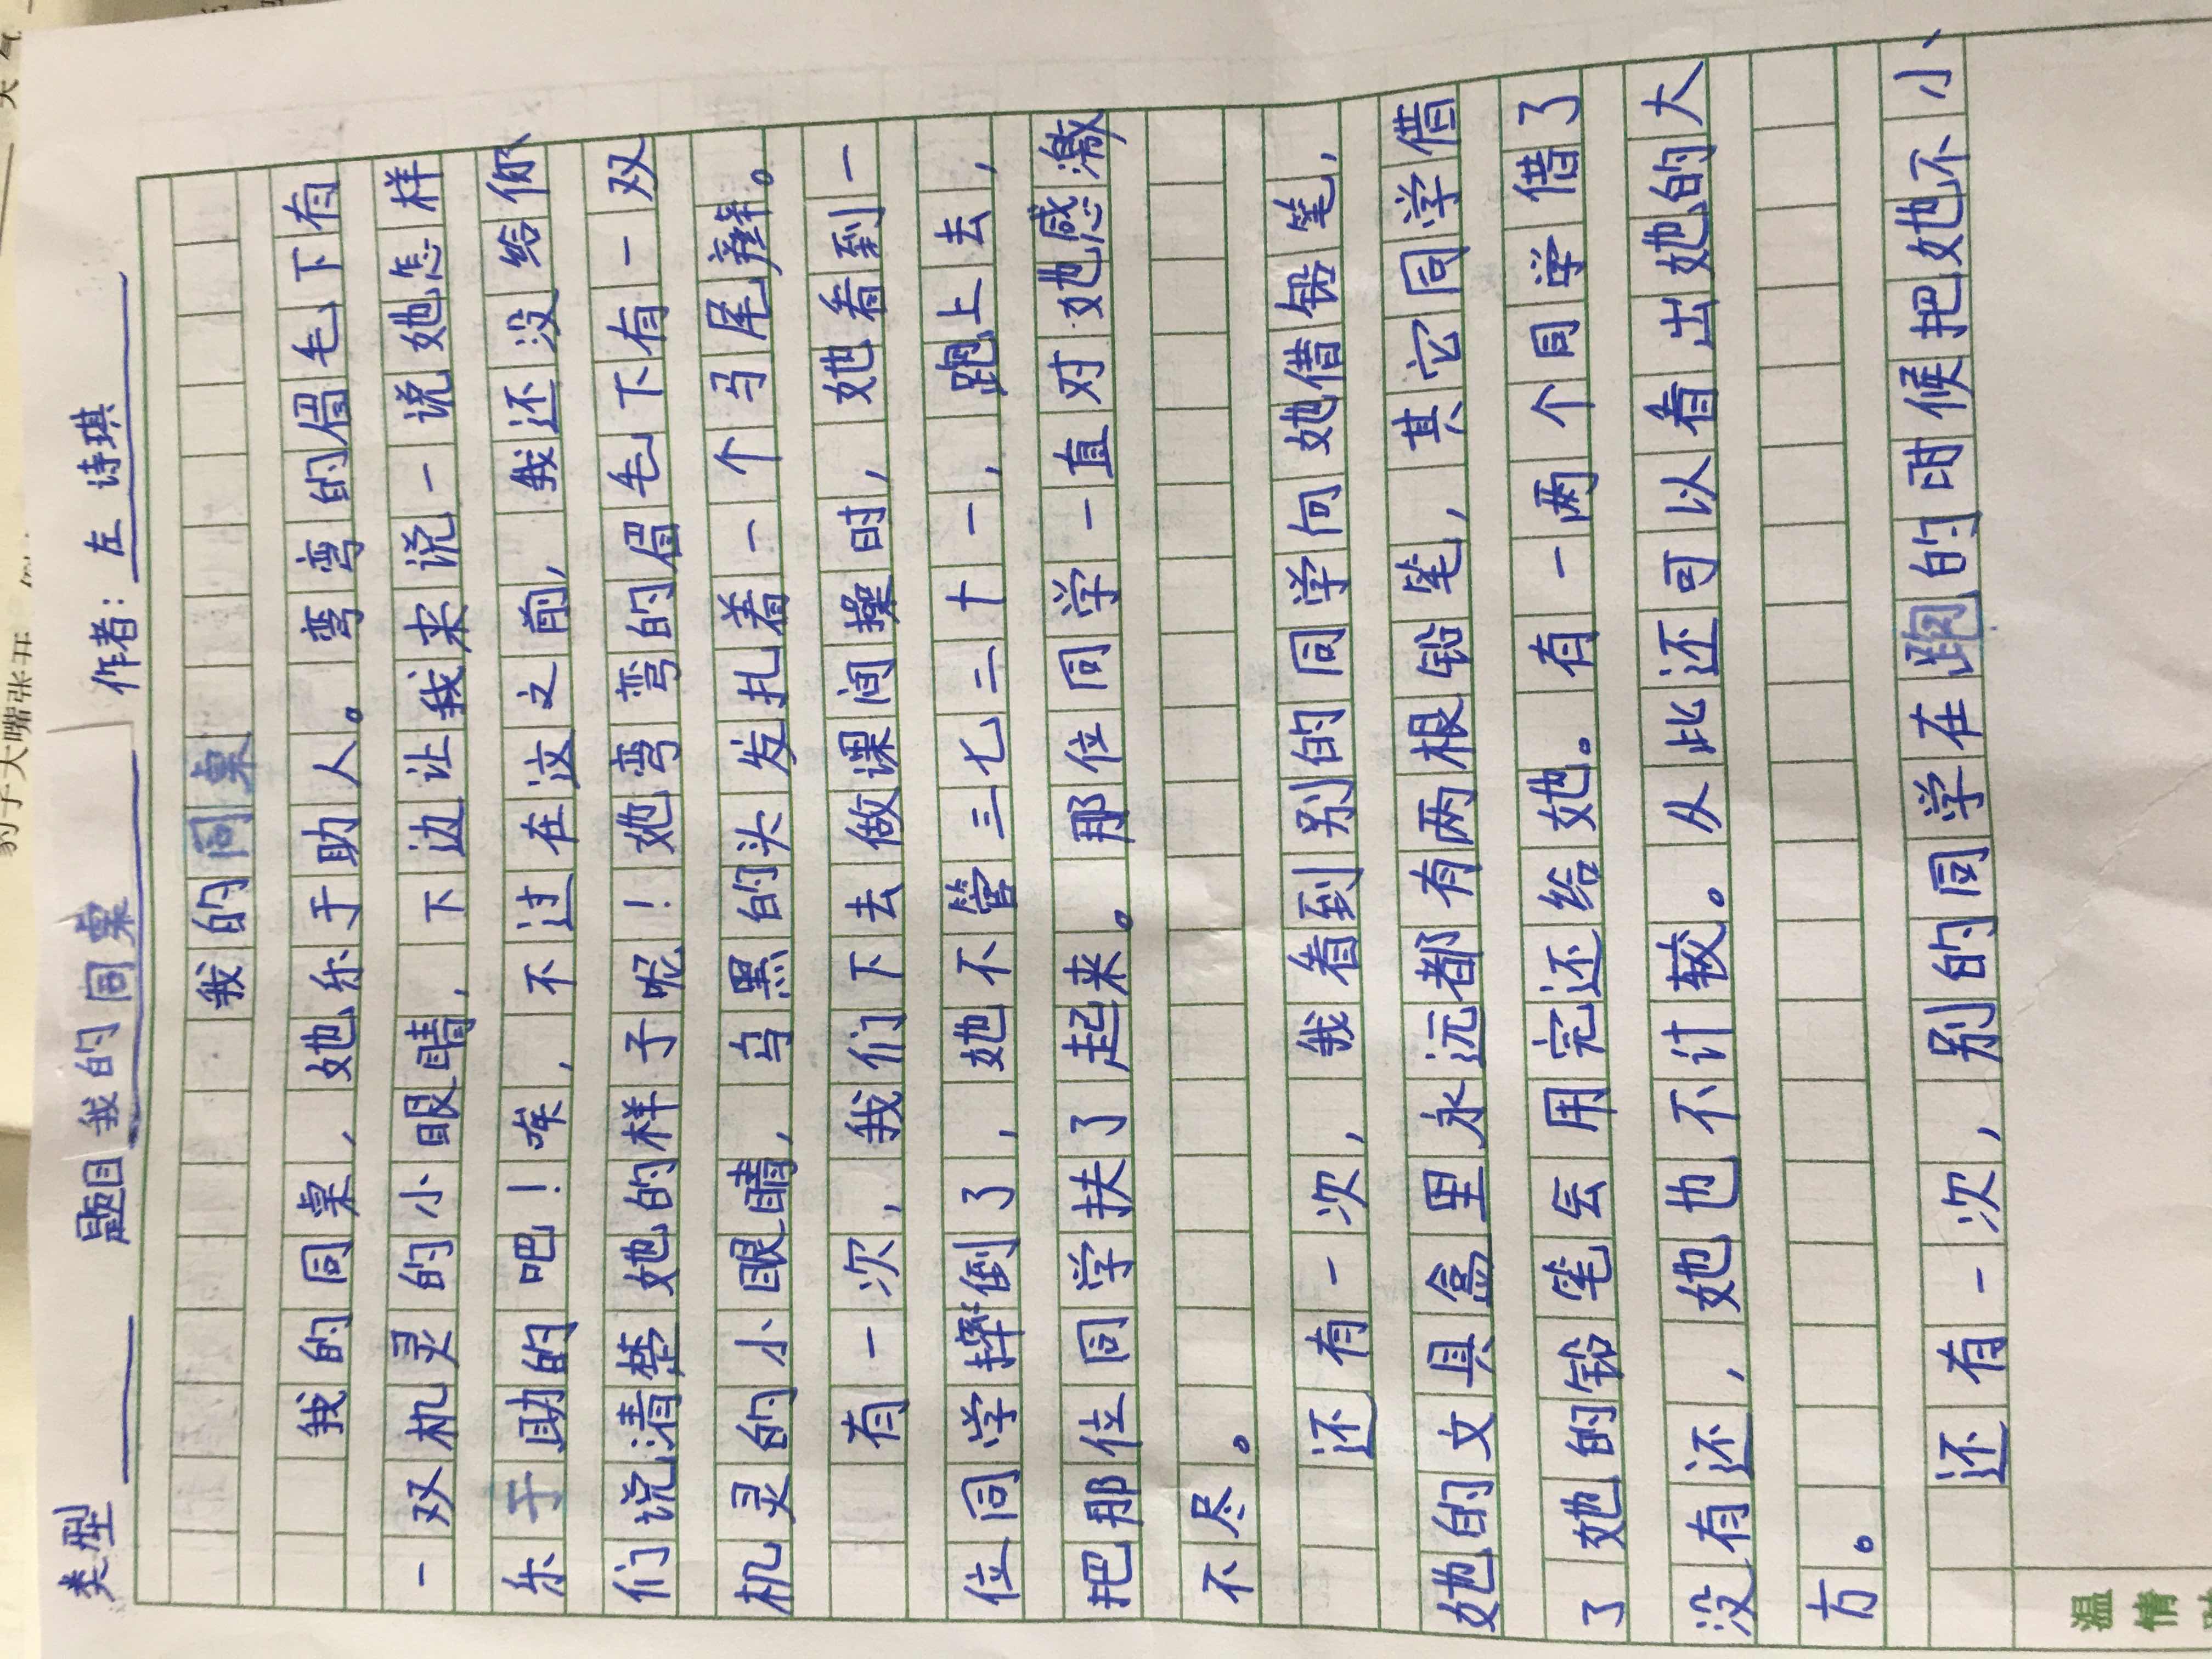 类型 题目 我的同桌 作者：左诗琪
我的同桌
我的同桌，她乐于助人。弯弯的眉毛下有
一双机灵的小眼睛，下边让我来说一说她怎样
乐于助的吧！唉，不过在这之前，我还没给你
们说清楚她的样子呢！她弯弯的眉毛下有一双
机灵的小眼睛，乌黑的头发扎着一个马尾辫。
有一次，我们下去做课间操时，她看到一
位同学摔倒了，她不管三七二十一，跑上去，
把那位同学扶了起来。那位同学一直对她感激
不尽。
还有一次，我看到别的同学向她借铅笔，
她的文具盒里永远都有两根铅笔，其它同学借
了她的铅笔会用完还给她。有一两个同学借了
没有还，她也不计较。从此还可以看出她的大
方。
还有一次，别的同学在跑的时候把她不小
温
情